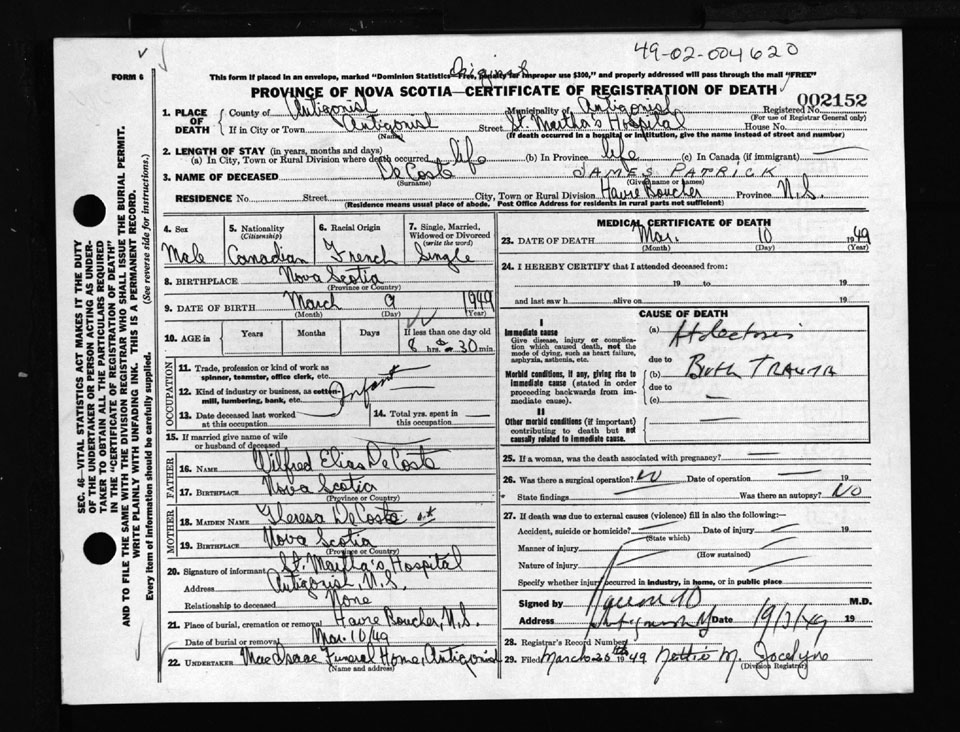 49-02-004620
FORM 6
Original
This form if placed in an envelope, marked "Dominion Statistics—Free, penalty for improper use $300," and properly addressed will pass through the mail "FREE"
PROVINCE OF NOVA SCOTIA—CERTIFICATE OF REGISTRATION OF DEATH
002152
1. PLACE OF DEATH
County of Antigonish Municipality of Antigonish Registered No.
(For use of Registrar General only)
If in City or Town Antigonish Street St. Martha's Hospital House No.
(Name) (If death occurred in a hospital or institution, give the name instead of street and number)
2. LENGTH OF STAY (in years, months and days)
(a) In City, Town or Rural Division where death occurred life (b) In Province life (c) In Canada (if immigrant) —
3. NAME OF DECEASED DeCoste JAMES PATRICK
(Surname) (Given name or names)
RESIDENCE No. Street City, Town or Rural Division Havre Boucher Province N.S.
(Residence means usual place of abode. Post Office Address for residents in rural parts not sufficient)
4. Sex 5. Nationality (Citizenship) 6. Racial Origin 7. Single, Married, Widowed or Divorced (write the word)
Male Canadian French Single
8. BIRTHPLACE Nova Scotia
(Province or Country)
9. DATE OF BIRTH March 9 1949
(Month) (Day) (Year)
10. AGE in Years Months Days If less than one day old
8 hrs. 30 min.
OCCUPATION
11. Trade, profession or kind of work as spinner, teamster, office clerk, etc.
12. Kind of industry or business, as cotton-mill, lumbering, bank, etc.
Infant
13. Date deceased last worked at this occupation —
14. Total yrs. spent in this occupation —
15. If married give name of wife or husband of deceased
FATHER
16. NAME Wilfred Elias DeCoste
17. BIRTHPLACE Nova Scotia
(Province or Country)
MOTHER
18. MAIDEN NAME Theresa DeCoste
19. BIRTHPLACE Nova Scotia
(Province or Country)
20. Signature of informant St. Martha's Hospital
Address Antigonish, N.S.
Relationship to deceased None
21. Place of burial, cremation or removal Havre Boucher, N.S.
Date of burial or removal Mar. 10/49
22. UNDERTAKER MacIsaac Funeral Home, Antigonish
(Name and address)
MEDICAL CERTIFICATE OF DEATH
23. DATE OF DEATH Mar. 10 1949
(Month) (Day) (Year)
24. I HEREBY CERTIFY that I attended deceased from:
19 to 19
and last saw h alive on 19
CAUSE OF DEATH
I
Immediate cause
Give disease, injury or complication which caused death, not the mode of dying, such as heart failure, asphyxia, asthenia, etc.
(a)
due to
Morbid conditions, if any, giving rise to immediate cause (stated in order proceeding backwards from immediate cause).
(b) Birth TRAUMA
due to
(c) —
II
Other morbid conditions (if important) contributing to death but not causally related to immediate cause.
25. If a woman, was the death associated with pregnancy? —
26. Was there a surgical operation? NO Date of operation — 19
State findings — Was there an autopsy? NO
27. If death was due to external causes (violence) fill in also the following:—
Accident, suicide or homicide? Date of injury 19
(State which)
Manner of injury
(How sustained)
Nature of injury
Specify whether injury occurred in industry, in home, or in public place
Signed by M.D.
Address Date 19/3/49 19
28. Registrar's Record Number
29. Filed March 20th 1949 Nettie M. Jocelyn
(Division Registrar)
SEC. 46—VITAL STATISTICS ACT MAKES IT THE DUTY
OF THE UNDERTAKER OR PERSON ACTING AS UNDERTAKER
TO OBTAIN ALL THE PARTICULARS REQUIRED
IN THE "CERTIFICATE OF REGISTRATION OF DEATH"
AND TO FILE THE SAME WITH THE DIVISION REGISTRAR WHO SHALL ISSUE THE BURIAL PERMIT.
WRITE PLAINLY WITH UNFADING INK. THIS IS A PERMANENT RECORD.
Every item of information should be carefully supplied. (See reverse side for instructions.)